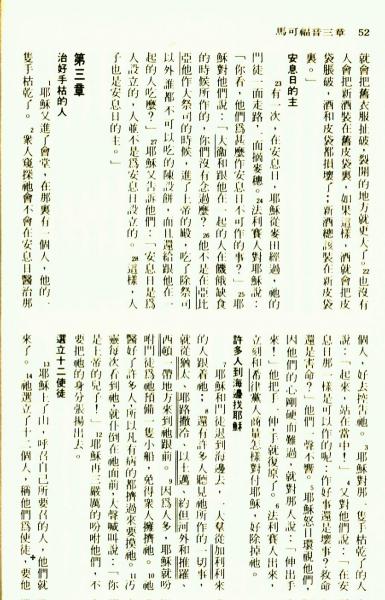 馬可福音三章 52
人會把舊衣服扯破,裂開的地方就更大了。22也沒有
人會把新酒裝在舊皮袋裏,如果這樣,酒就會把皮
袋脹破,酒和皮袋都損壞了;新酒總該裝在新皮袋
裏。」
安息日的主
23有一次,在安息日,耶穌從麥田經過,祂的
門徒一面走路,一面摘麥穗。24法利賽人對耶穌說:
「你看,他們爲甚麼作安息日不可作的事?」25耶
穌對他們說:「大衞和跟他在一起的人在饑餓缺食
的時候所作的,你們沒有念過麼?26他不是在亞比
亞他作大祭司的時候,進了上帝的殿,吃了除祭司
以外誰都不可以吃的陳設餅,而且還給跟他在一
起的人吃麼?」27耶穌又告訴他們:「安息日是爲
人設立的,人並不是爲安息日設立的。28這樣,人
子也是安息日的主。」
第三章
治好手枯的人
1耶穌又進了會堂,在那裏有一個人,他的一
隻手枯乾了。2衆人窺探祂會不會在安息日醫治那
個人,好去控告祂。3耶穌對那一隻手枯乾了的人
說:「起來,站在當中!」4又對他們說:「在安
息日那一樣是可以作的呢:作好事還是壞事?救命
還是害命?」他們一聲不響。5耶穌怒目環視他們,
因他們的心剛硬而難過,就對那人說:「伸出手
來!」他把手一伸,手就復原了。6法利賽人出來,
立刻和希律黨人商量怎樣對付耶穌,好除掉祂。
許多人到海邊找耶穌
7耶穌和門徒退到海邊去,一大羣從加利利來
的人跟着祂;8還有許多人聽見祂所作的一切事,
就從猶太、耶路撒冷、以土邁、約但河外和推羅、
西頓一帶地方來到祂跟前。9因爲人多,耶穌就吩
咐門徒爲祂預備一隻小船,免得衆人擁擠祂。10祂
醫好了許多人,所以凡有病的都擠過來要摸祂。11污
靈每次看到祂,就仆倒在祂面前,大聲喊叫說:「你
是上帝的兒子!」12耶穌再三嚴厲的吩咐他們,不
要把祂的身分張揚出去。
選立十二使徒
13耶穌上了山,呼召自己所要召的人,他們就
來了。14祂選立了十二個人,稱他們爲使徒,要他